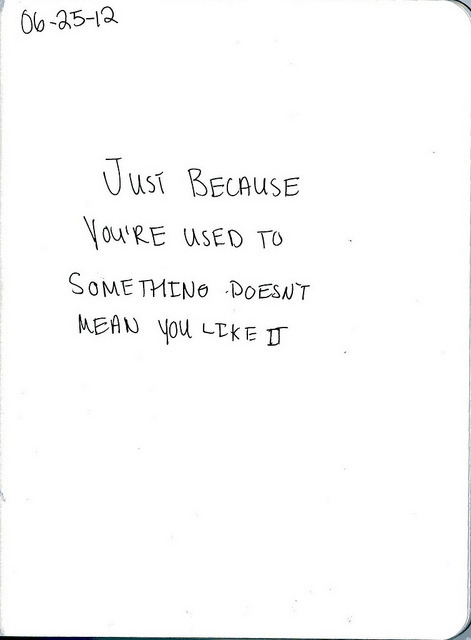 06-25-12
JUST BECAUSE
YOU'RE USED TO
SOMETHING DOESN'T
MEAN YOU LIKE IT